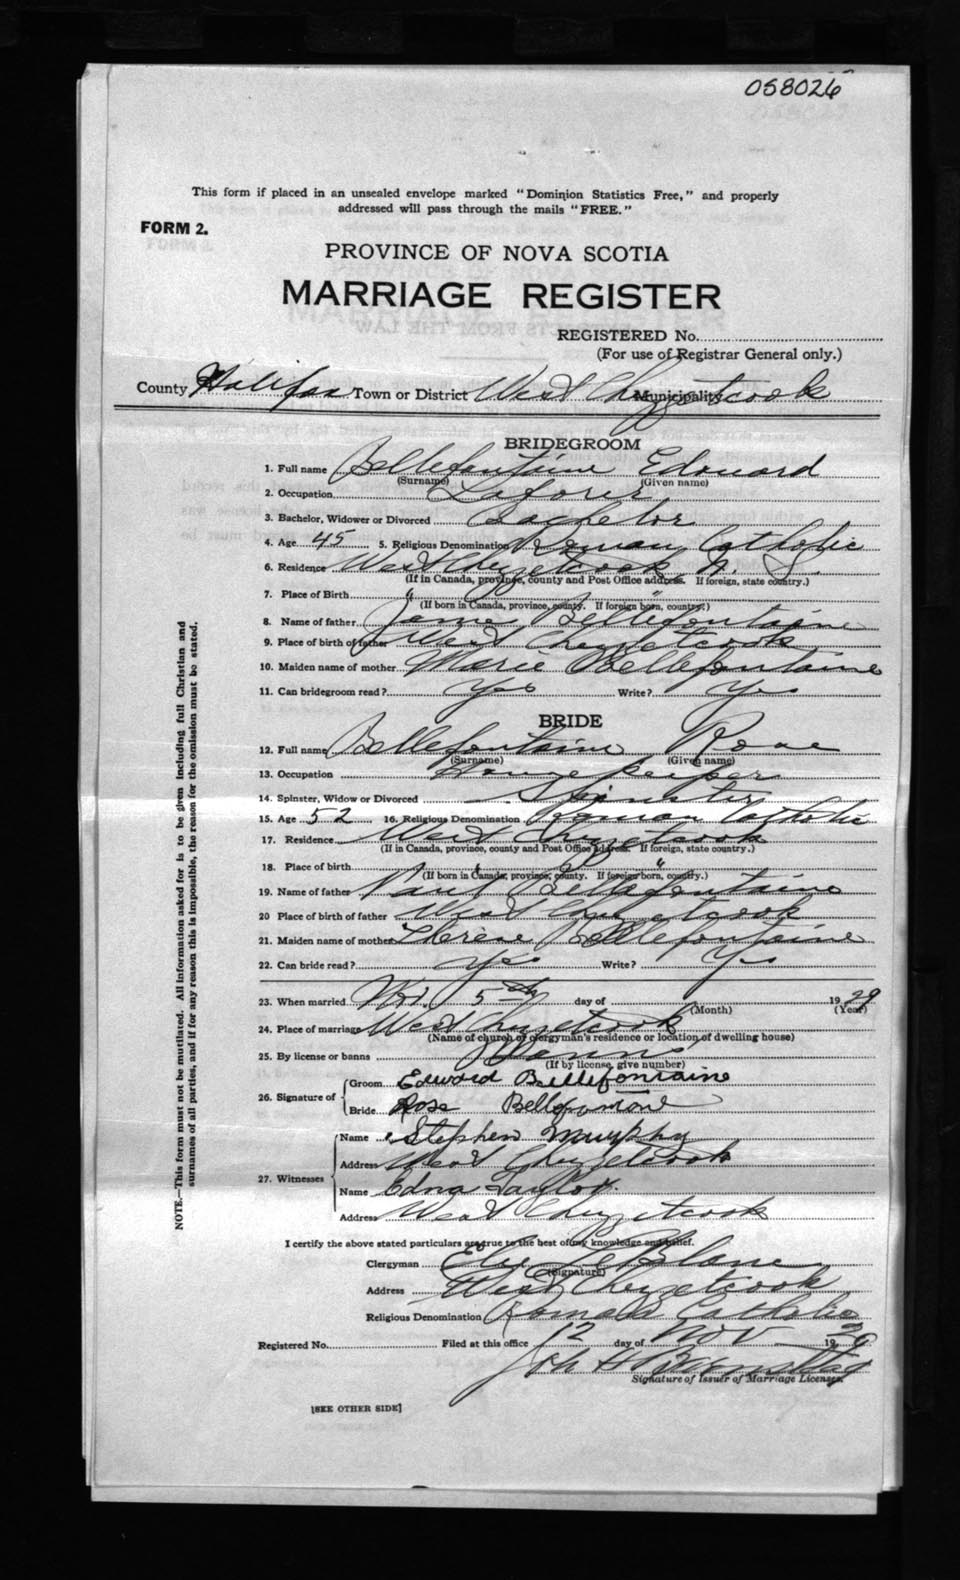 058026
This form if placed in an unsealed envelope marked "Dominion Statistics Free," and properly
addressed will pass through the mails "FREE."
FORM 2.
PROVINCE OF NOVA SCOTIA
MARRIAGE REGISTER
REGISTERED No.
(For use of Registrar General only.)
County Halifax Town or District West Chezzetcook Municipality
BRIDEGROOM
1. Full name Bellefontaine Edouard
(Surname) (Given name)
2. Occupation Laborer
3. Bachelor, Widower or Divorced Bachelor
4. Age 45 5. Religious Denomination Roman Catholic
6. Residence West Chezzetcook N. S.
(If in Canada, province, county and Post Office address. If foreign, state country.)
7. Place of Birth " "
(If born in Canada, province, county. If foreign born, country.)
8. Name of father Bellefontaine
9. Place of birth of father West Chezzetcook
10. Maiden name of mother Marie Bellefontaine
11. Can bridegroom read? Yes Write? Yes
BRIDE
12. Full name Bellefontaine Rose
(Surname) (Given name)
13. Occupation Housekeeper
14. Spinster, Widow or Divorced Spinster
15. Age 52 16. Religious Denomination Roman Catholic
17. Residence West Chezzetcook
(If in Canada, province, county and Post Office address. If foreign, state country.)
18. Place of birth " "
(If born in Canada, province, county. If foreign born, country.)
19. Name of father Paul Bellefontaine
20 Place of birth of father West Chezzetcook
21. Maiden name of mother Therese Bellefontaine
22. Can bride read? Yes Write? Yes
23. When married 5th day of 1929
(Month) (Year)
24. Place of marriage West Chezzetcook
(Name of church or clergyman's residence or location of dwelling house)
25. By license or banns Banns
(If by license, give number)
26. Signature of
Groom Edward Bellefontaine
Bride Rose
27. Witnesses
Name Stephen Murphy
Address West Chezzetcook
Name Edna Taylor
Address West Chezzetcook
I certify the above stated particulars are true to the best of my knowledge and belief.
Clergyman LeBlanc
(Signature)
Address West Chezzetcook
Religious Denomination Roman Catholic
Registered No. Filed at this office 12 day of Nov 1929
Signature of Issuer of Marriage Licenses.
[SEE OTHER SIDE]
NOTE.—This form must not be mutilated. All information asked for is to be given including full Christian and
surnames of all parties, and if for any reason this is impossible, the reason for the omission must be stated.